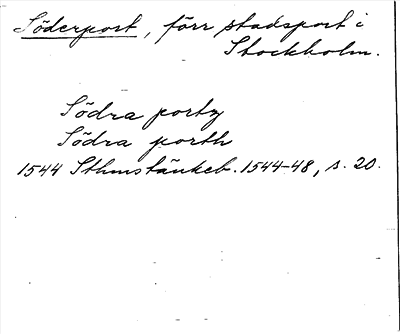 Söderport, förr stadsport i
Stockholm.
Södra porty
Södra porth
1544 Sthmstänkeb. 1544-48, s. 20.